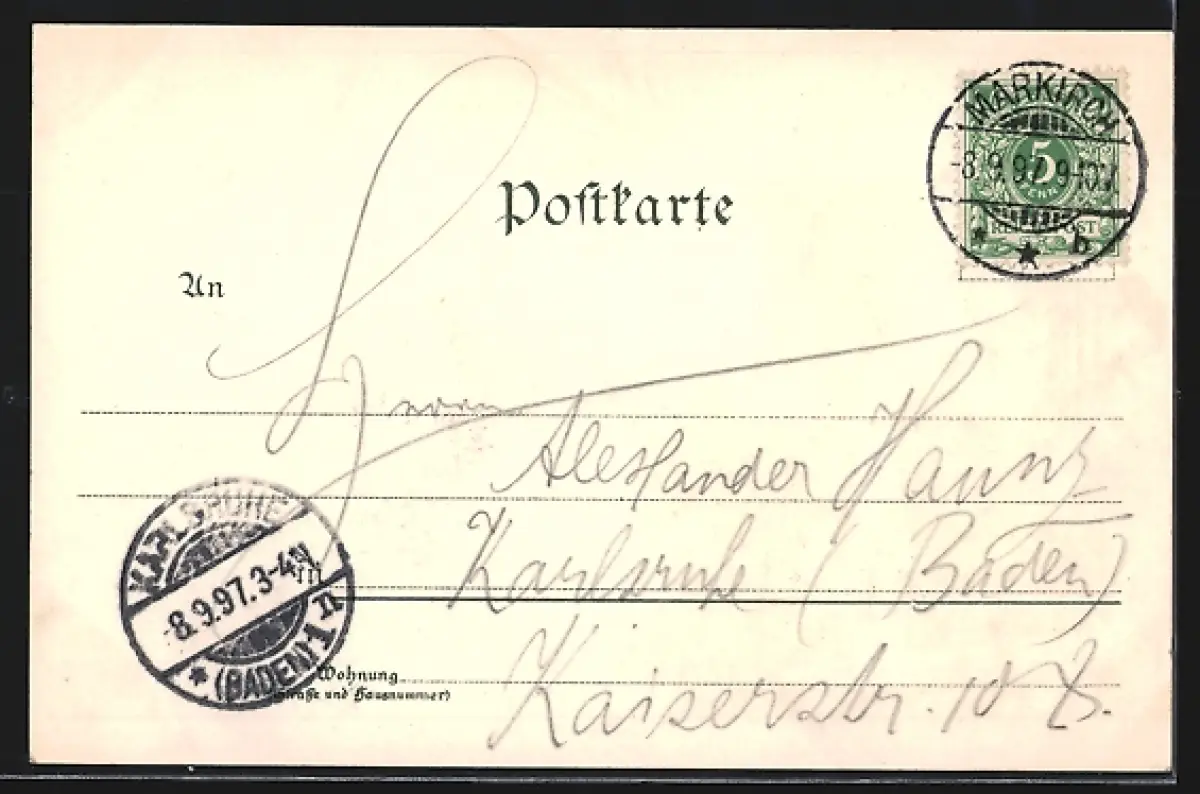 MARKIRCH
-8.9.97. 9-10V.
* ★ b
5
PFENNIG
REICHSPOST
Postkarte
An
Herrn
Alexander
Karlsruhe (Baden)
in
Kaiserstr.
Wohnung
(Straße und Hausnummer)
KARLSRUHE
-8.9.97. 3-4N.
* (BADEN) 1 n